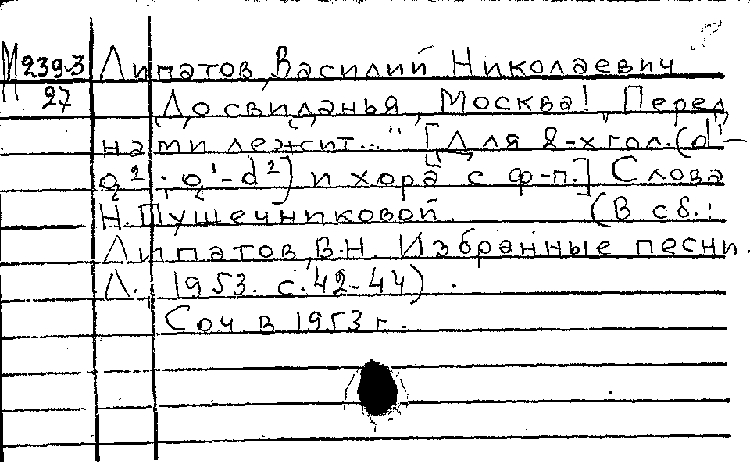 М 239-3 Липатов, Василий Николаевич
27 До свиданья, Москва! „Перед
нами лежит..." [Для 2-х гол. (d¹-
g²; g¹-d²) и хора с ф-п.] Слова
Н. Пушечниковой. (В сб.:
Липатов, В.Н. Избранные песни.
Л. 1953. с. 42-44).
Соч в 1953 г.